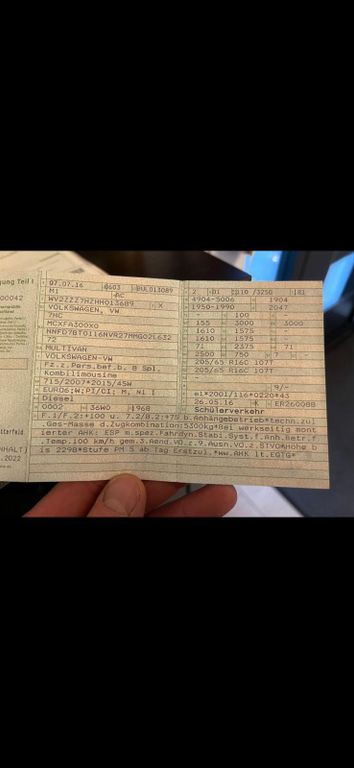 gung Teil I
00042
07.07.16 0603 BUL013089
M1 AC
WV2ZZZ7HZHH013689 X
VOLKSWAGEN, VW
7HC
MCXFA300X0
NNFD7BT0116NVR27MMG02L632
72
MULTIVAN
VOLKSWAGEN-VW
Fz.z.Pers.bef.b. 8 Spl.
Kombilimousine
715/2007*2015/45W
EURO6;W;PI/CI; M, N1 I
Diesel
0002 36W0 1968
2 01 110 /3250 181
4904-5006 1904
1950-1990 2047
- 100 -
155 3000 3000
1610 1575 -
1610 1575 -
71 2375 71
2500 750 7 1 -
205/65 R16C 107T
205/65 R16C 107T
9/-
e1*2001/116*0220*43
26.05.16 K ER260088
Schülerverkehr
F.1/F.2:+100 u. 7.2/8.2:+75 b.Anhängebetrieb*techn.zul
.Ges-Masse d.Zugkombination:5300kg*Bei werkseitig mont
ierter AHK: ESP m.spez.Fahrdyn.Stabi.Syst.f.Anh.Betr.f
.Temp.100 km/h gem.3.Aend.VO.z.9.Ausn.VO.z.STVO*Höhe b
is 2298*Stufe PM 5 ab Tag Erstzul.*ww.AHK lt.EGTG*
tterfeld
NHALT)
.2022